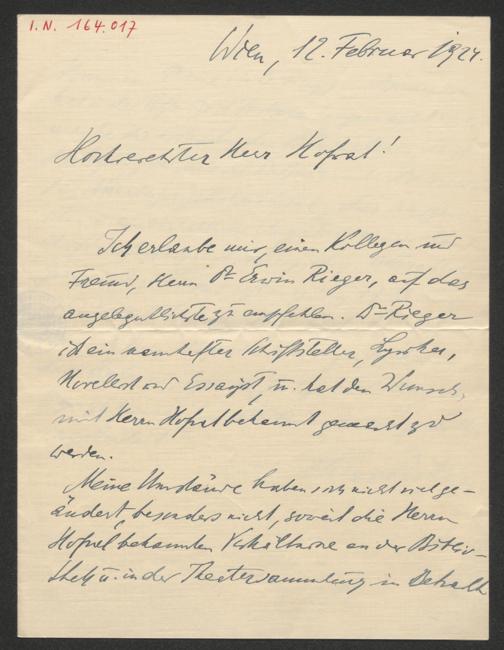 I.N. 164.017
Wien, 12. Februar 1924.
Hochverehrter Herr Hofrat!
Ich erlaube mir, einen Kollegen und
Freund, Herrn Dr Erwin Rieger, auf das
angelegentlichste zu empfehlen. Dr Rieger
ist ein namhafter Schriftsteller, Lyriker,
Novellist und Essayist, u. hat den Wunsch,
mit Herrn Hofrat bekannt gemacht zu
werden.
Meine Umstände haben sich nicht viel ge-
ändert, besonders nicht, soweit die Herrn
Hofrat bekannten Verhältnisse an der Biblio-
thek u. in der Theatersammlung in Betracht